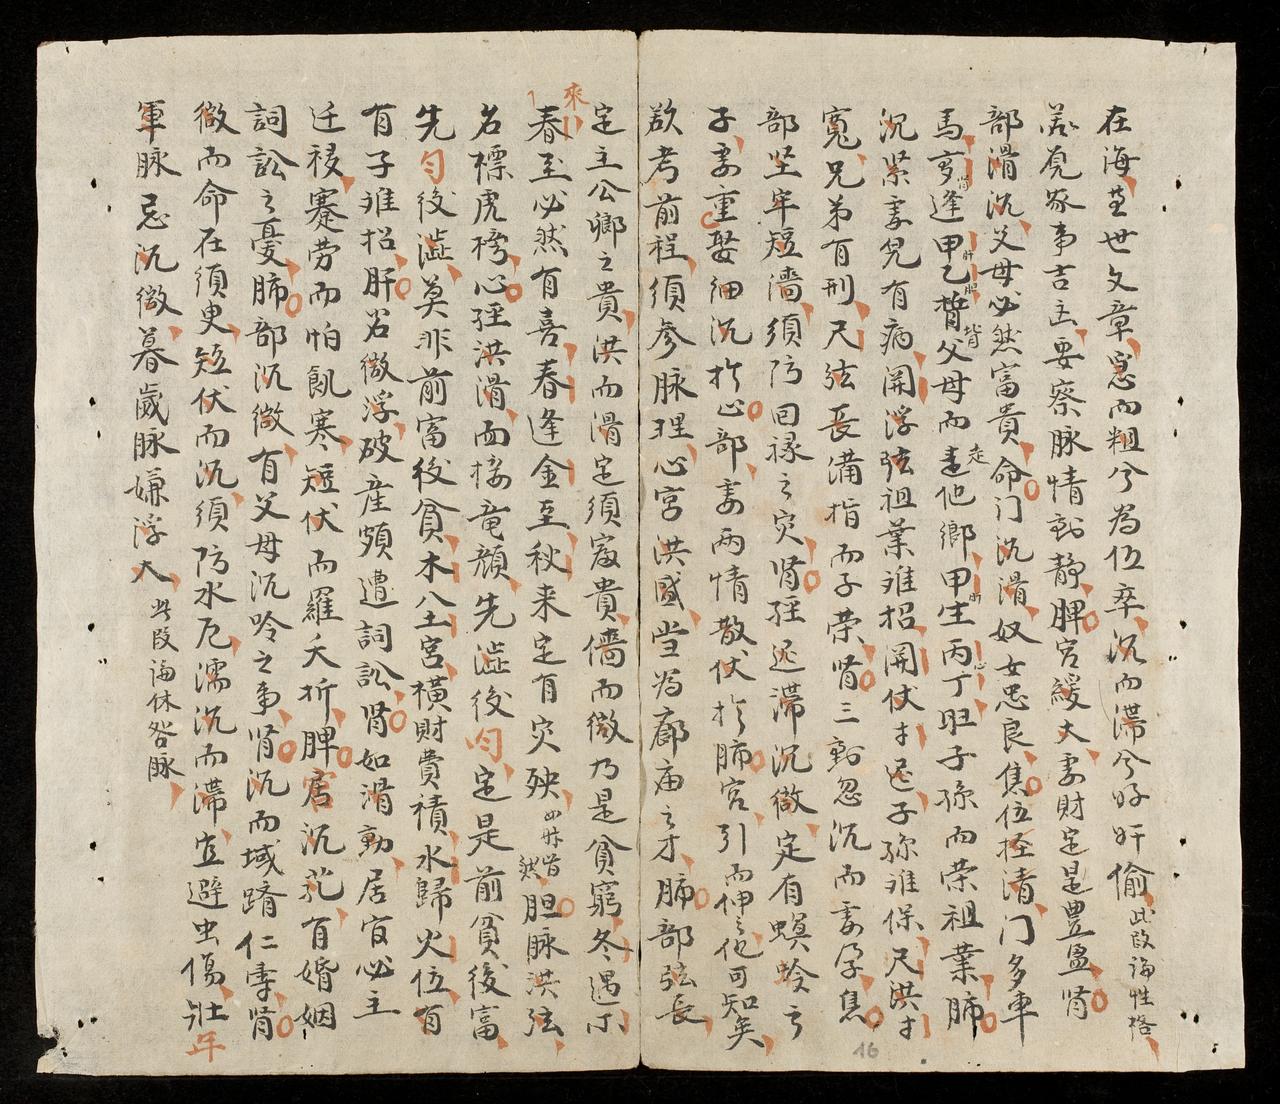 在海莅世文章急而粗兮為伍卒沉而滯兮好奸偷此段論性格
若覓家事吉凶要察脉情動静脾宮緩大妻財定是豊盈肾
部滑沉父母必然富貴命门沉滑奴女忠良焦位弦清门多車
馬享逢甲乙背父母而走他鄉甲生丙丁旺子孫而荣祖業肺
沉紧妻児有病開浮弦祖業难招開伏才退子孫难保尺洪才
寬兄弟有刑尺弦長備指而子荣肾三動忽沉而妻孕焦
部坚牢短濇须防回禄之灾肾經迟滞沉微定有螟蛉之
子妻重娶細沉於心部妻两情散伏於肺宮引而伸之他可知矣
欲考前程须参脉理心宮洪盛堂為廊庙之才肺部弦長
定主公卿之貴洪而滑定须富貴濇而微乃是貧窮冬遇小
來
春至必然有喜春逢金至秋来定有灾殃四季皆然胆脉洪弦
名標虎榜心經洪滑面接竜顔先澁後匀定是前貧後富
先匀後澁莫非前富後貧木八土宮横財費積水歸火位有
有子难招肝若微浮破産頻遭詞訟肾如滑動居官必主
迁移蹇劳而怕飢寒短伏而羅夭折脾宮沉芤有婚姻
詞訟之憂肺部沉微有父母沉吟之事肾沉而域躋仁夀肾
微而命在须臾短伏而沉须防水厄濡沉而滞宜避虫傷壯年
軍脉忌沉微暮歲脉嫌浮大此段論休咎脉
16